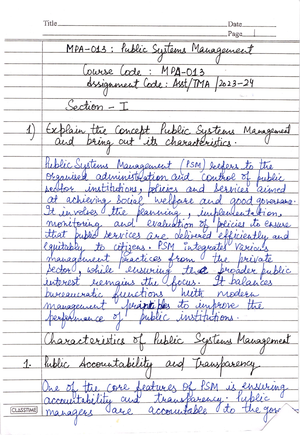 Title Date
Page
MPA-013 : Public Systems Management
Course Code : MPA-013
Assignment Code : Asst/TMA /2023-24
Section - I
1) Explain the Concept Public Systems Management
and bring out its characteristics.
Public Systems Management (PSM) refers to the
organised administration and control of public
sector institutions, policies and services aimed
at achieving social welfare and good governance.
It involves the planning, implementation,
monitoring and evaluation of policies to ensure
that public services are delivered efficiently and
equitably to citizens. PSM integrates various
management practices from the private
sector, while ensuring the broader public
interest remains the focus. It balances
bureaucratic functions with modern
management principles to improve the
performance of public institutions.
Characteristics of Public Systems Management
1. Public Accountability and Transparency
One of the core features of PSM is ensuring
accountability and transparency. Public
managers are accountable to the gov
CLASSTIME